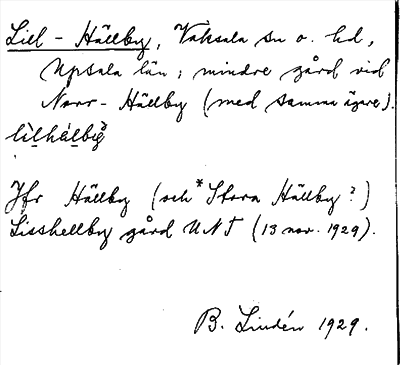 Lill - Hällby, Vaksala sn o. hd,
Upsala län; mindre gård vid
Norr - Hällby (med samma ägare).
lìlhálby
Jfr Hällby (och *Stora Hällby?)
Lisshellby gård UNT (13 nov. 1929).
B. Lindén 1929.